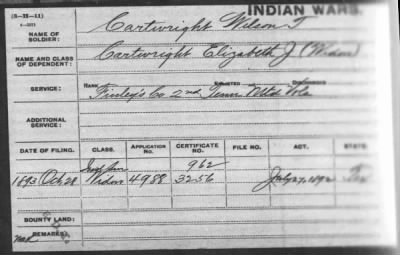 (3-32-11)
INDIAN WARS.
NAME OF SOLDIER: Cartwright Wilson T
NAME AND CLASS OF DEPENDENT: Cartwright Elizabeth J (Widow)
RANK ENLISTED DISCHARGED
SERVICE: Finley's Co 2nd Tenn Mtd Vols
ADDITIONAL SERVICE:
DATE OF FILING. CLASS. APPLICATION No. CERTIFICATE No. FILE NO. ACT. STATE
962
1893 Oct 28 Widow 4988 3256 July 27, 1892
BOUNTY LAND:
REMARKS: